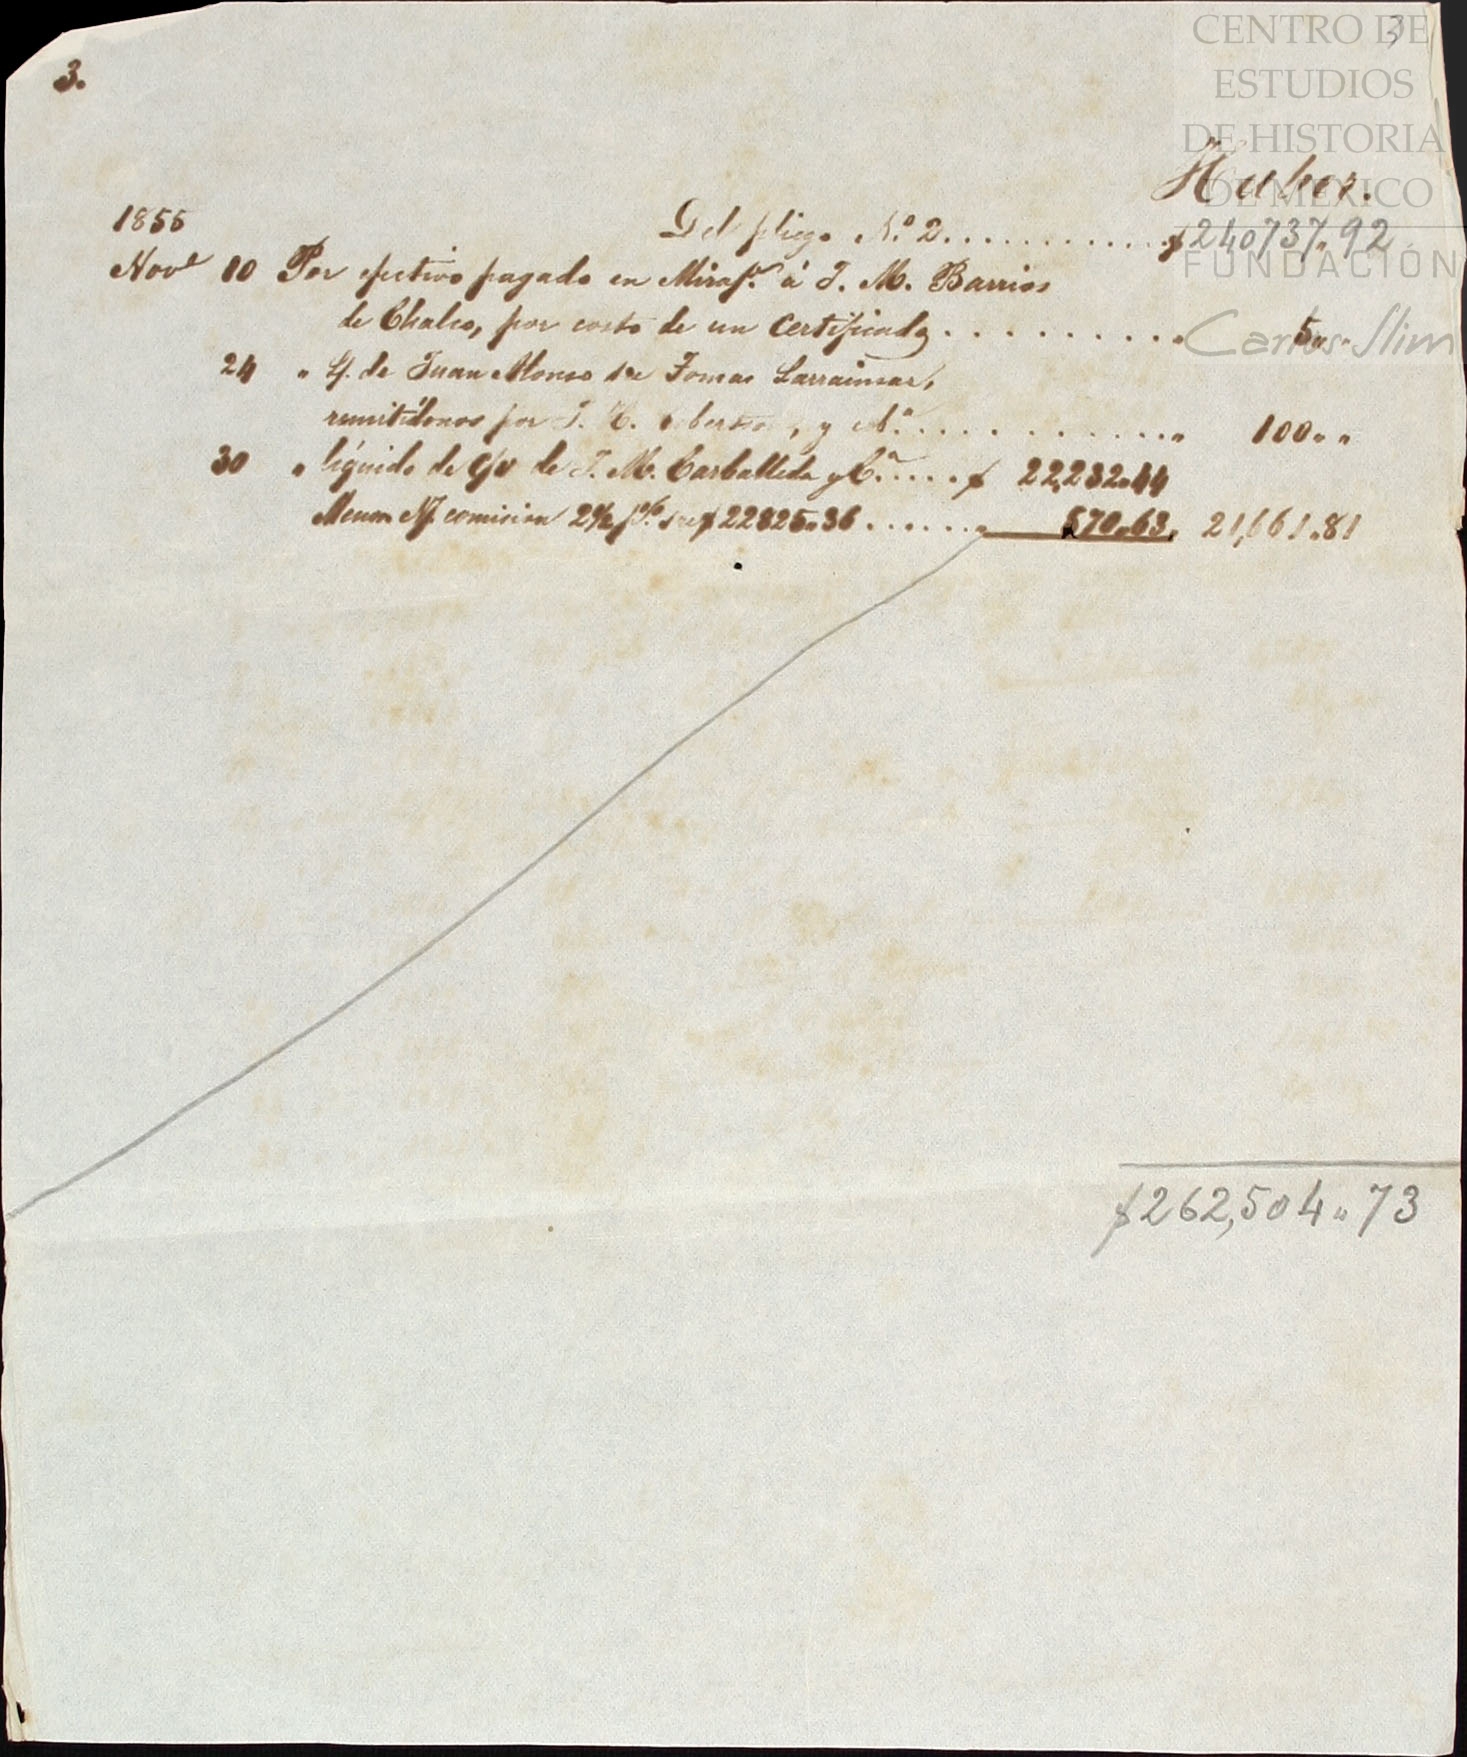 3.
3
CENTRO DE
ESTUDIOS
DE HISTORIA
DE MÉXICO
FUNDACIÓN
Carlos Slim
Haber.
1855 Del pliego N.º 2............$240737„92
Nov.e 10 Por efectivo pagado en Miraf.s á J. M. Barrios
de Chalco, por costo de un Certificado.......... „ 5„„
24 „ L/. de Juan Alonso s/e Tomas Larrainzar,
remitídonos por J. , y C.ª............„ 100„„
30 „ líquido de c/v de J. M. Carballeda y C.ª.....$ 22,232„44
Menos N/. comision 2½ p% s/e $22825„36.......„ 570„63. 21,661„81
$262,504„73